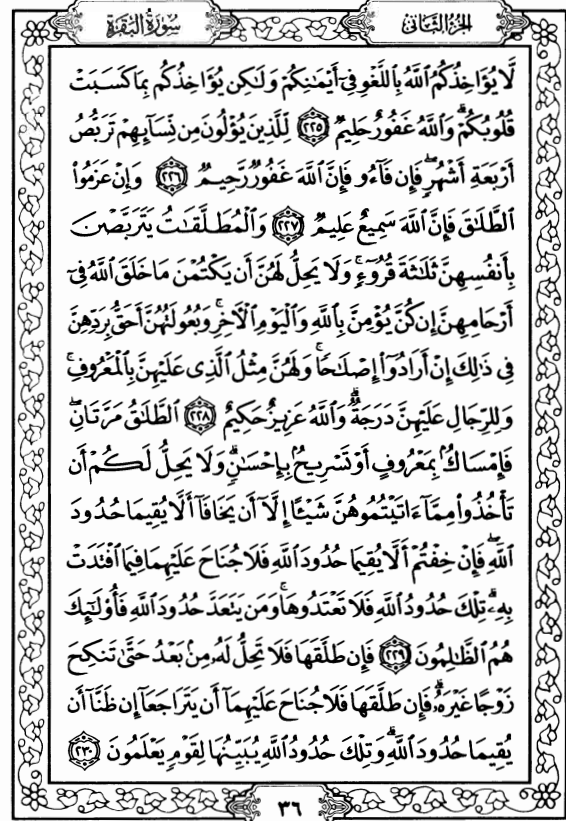 سُورَةُ البَقَرَةِ
الجُزءُ الثَّانِي
لَّا يُؤَاخِذُكُمُ ٱللَّهُ بِٱللَّغْوِ فِىٓ أَيْمَـٰنِكُمْ وَلَـٰكِن يُؤَاخِذُكُم بِمَا كَسَبَتْ
قُلُوبُكُمْ ۗ وَٱللَّهُ غَفُورٌ حَلِيمٌ ٢٢٥ لِّلَّذِينَ يُؤْلُونَ مِن نِّسَآئِهِمْ تَرَبُّصُ
أَرْبَعَةِ أَشْهُرٍ ۖ فَإِن فَآءُو فَإِنَّ ٱللَّهَ غَفُورٌ رَّحِيمٌ ٢٢٦ وَإِنْ عَزَمُوا۟
ٱلطَّلَـٰقَ فَإِنَّ ٱللَّهَ سَمِيعٌ عَلِيمٌ ٢٢٧ وَٱلْمُطَلَّقَـٰتُ يَتَرَبَّصْنَ
بِأَنفُسِهِنَّ ثَلَـٰثَةَ قُرُوٓءٍ ۚ وَلَا يَحِلُّ لَهُنَّ أَن يَكْتُمْنَ مَا خَلَقَ ٱللَّهُ فِىٓ
أَرْحَامِهِنَّ إِن كُنَّ يُؤْمِنَّ بِٱللَّهِ وَٱلْيَوْمِ ٱلْـَٔاخِرِ ۚ وَبُعُولَتُهُنَّ أَحَقُّ بِرَدِّهِنَّ
فِى ذَٰلِكَ إِنْ أَرَادُوٓا۟ إِصْلَـٰحًا ۚ وَلَهُنَّ مِثْلُ ٱلَّذِى عَلَيْهِنَّ بِٱلْمَعْرُوفِ ۚ
وَلِلرِّجَالِ عَلَيْهِنَّ دَرَجَةٌ ۗ وَٱللَّهُ عَزِيزٌ حَكِيمٌ ٢٢٨ ٱلطَّلَـٰقُ مَرَّتَانِ ۖ
فَإِمْسَاكٌۢ بِمَعْرُوفٍ أَوْ تَسْرِيحٌۢ بِإِحْسَـٰنٍ ۗ وَلَا يَحِلُّ لَكُمْ أَن
تَأْخُذُوا۟ مِمَّآ ءَاتَيْتُمُوهُنَّ شَيْـًٔا إِلَّآ أَن يَخَافَآ أَلَّا يُقِيمَا حُدُودَ
ٱللَّهِ ۖ فَإِنْ خِفْتُمْ أَلَّا يُقِيمَا حُدُودَ ٱللَّهِ فَلَا جُنَاحَ عَلَيْهِمَا فِيمَا ٱفْتَدَتْ
بِهِۦ ۗ تِلْكَ حُدُودُ ٱللَّهِ فَلَا تَعْتَدُوهَا ۚ وَمَن يَتَعَدَّ حُدُودَ ٱللَّهِ فَأُو۟لَـٰٓئِكَ
هُمُ ٱلظَّـٰلِمُونَ ٢٢٩ فَإِن طَلَّقَهَا فَلَا تَحِلُّ لَهُۥ مِنۢ بَعْدُ حَتَّىٰ تَنكِحَ
زَوْجًا غَيْرَهُۥ ۗ فَإِن طَلَّقَهَا فَلَا جُنَاحَ عَلَيْهِمَآ أَن يَتَرَاجَعَآ إِن ظَنَّآ أَن
يُقِيمَا حُدُودَ ٱللَّهِ ۗ وَتِلْكَ حُدُودُ ٱللَّهِ يُبَيِّنُهَا لِقَوْمٍ يَعْلَمُونَ ٢٣٠
٣٦